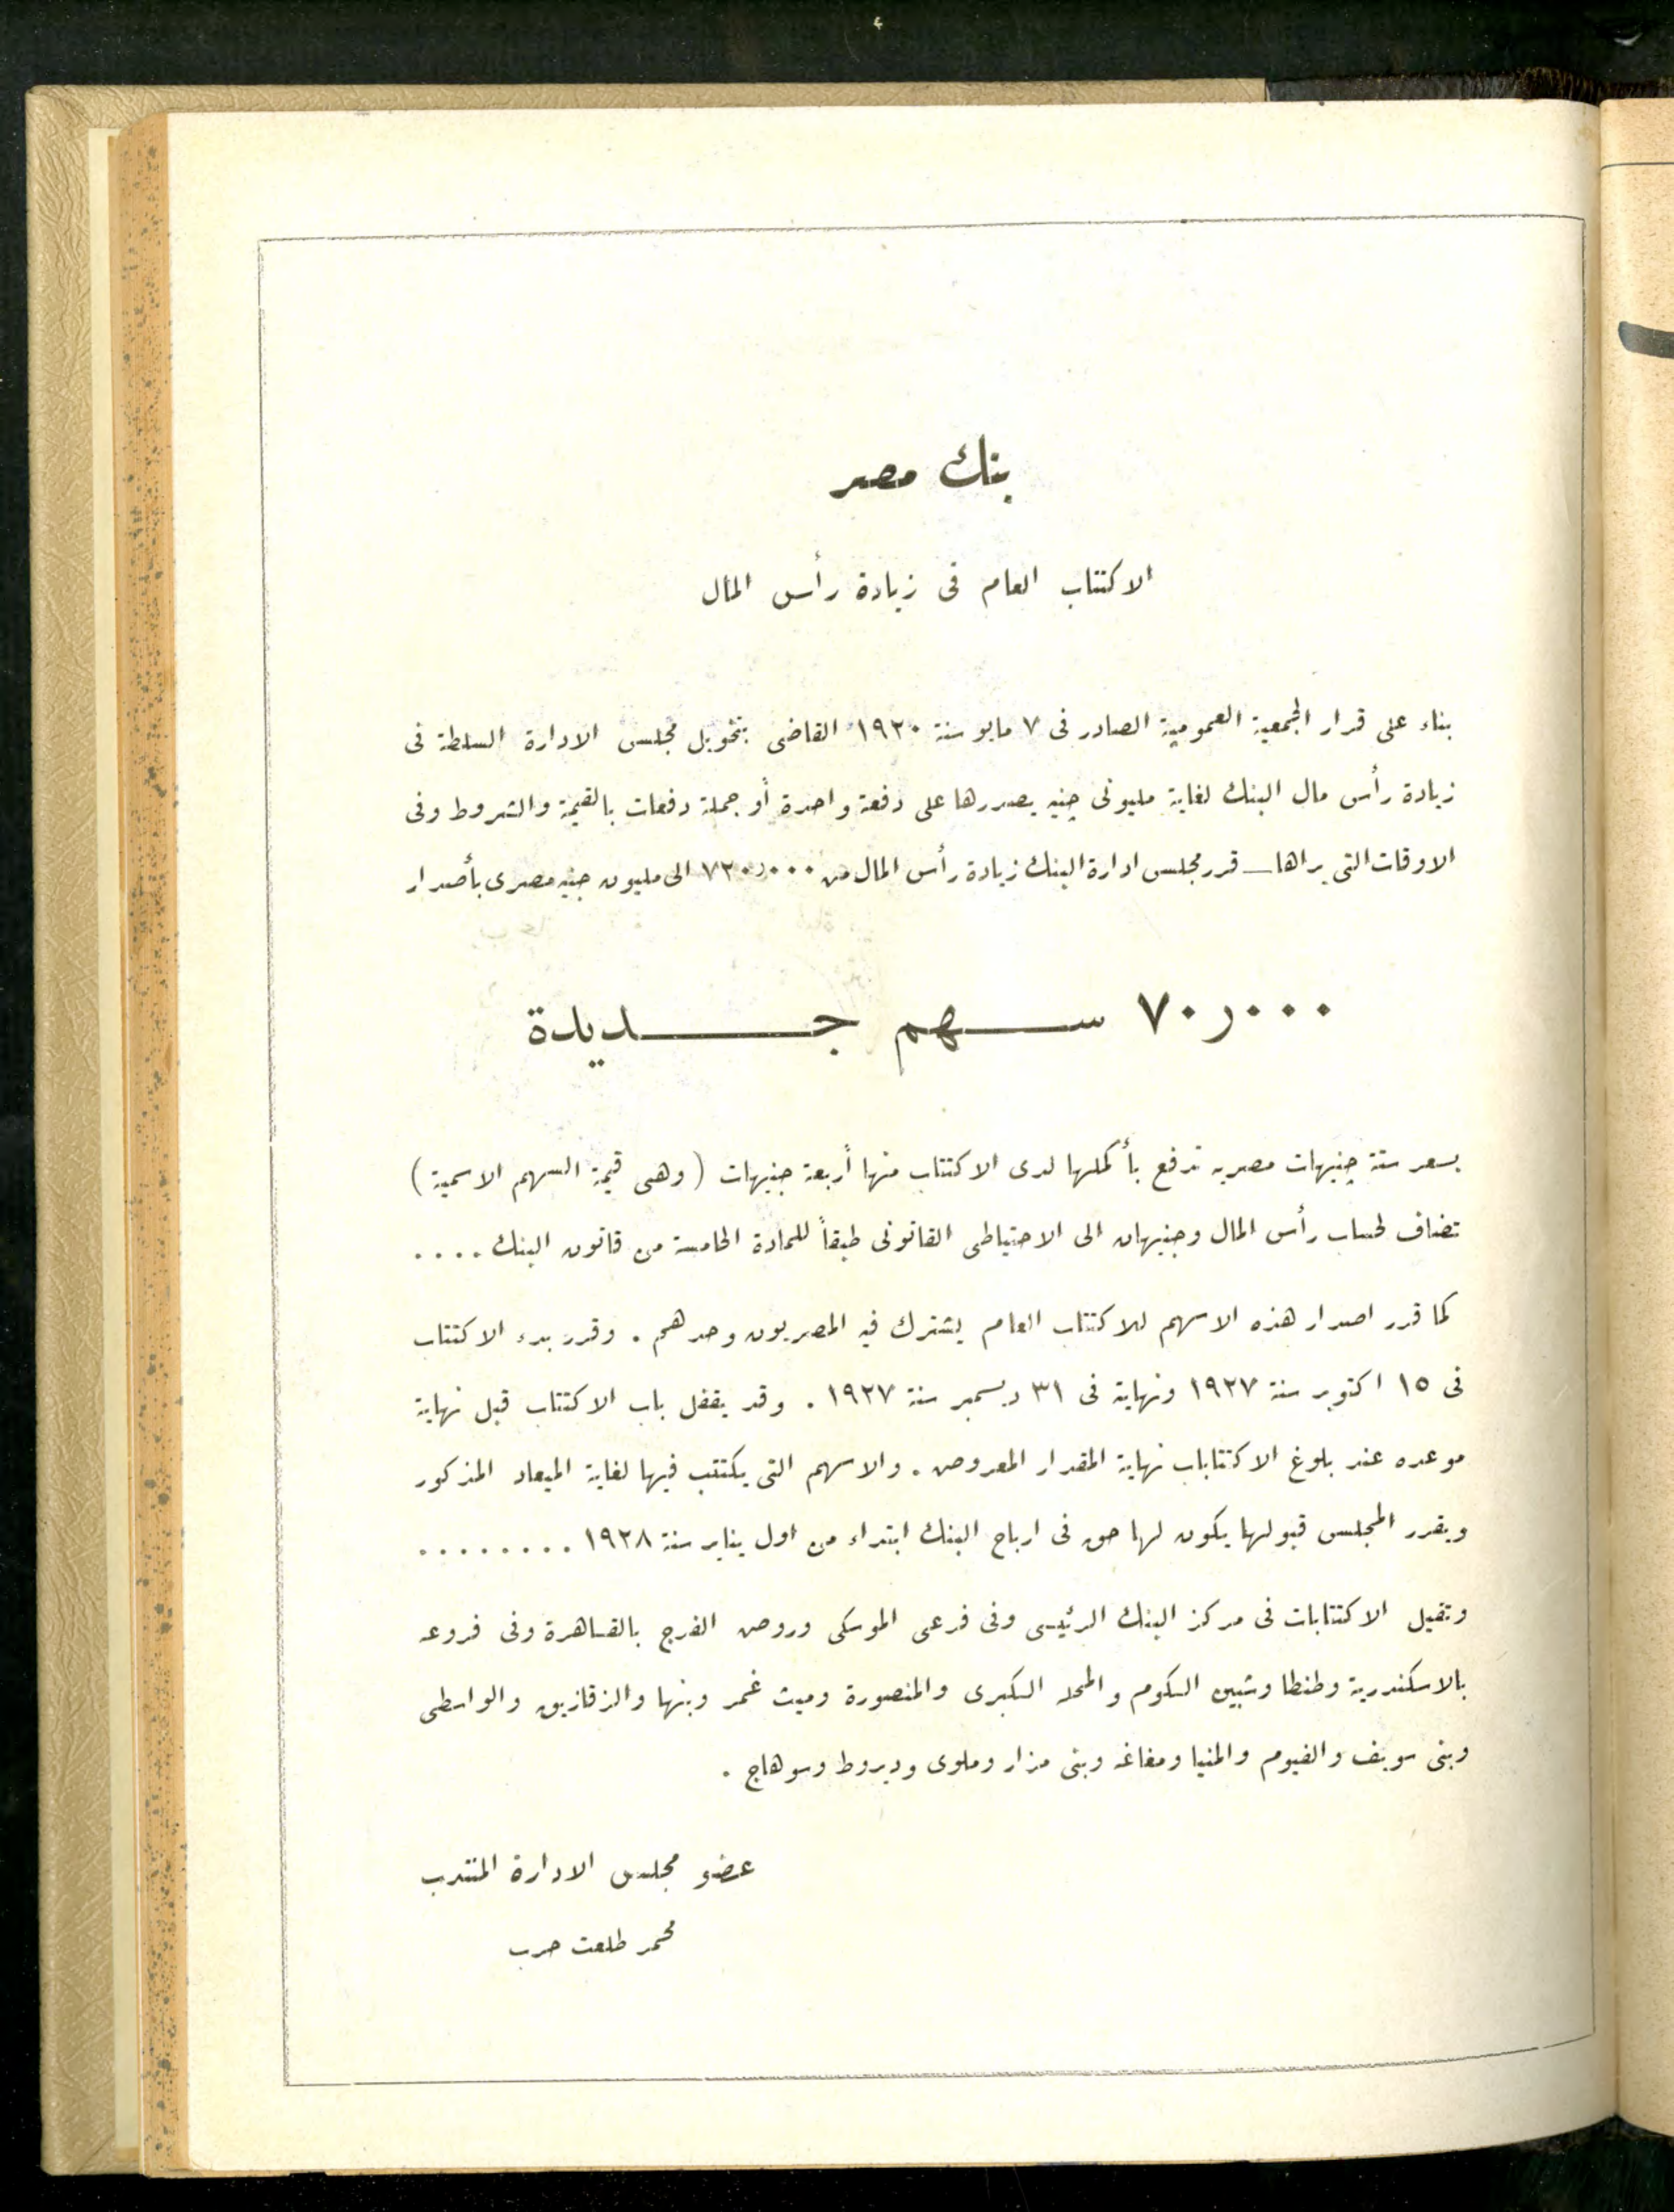 بنك مصر
الاكتتاب العام فى زيادة رأس المال
بناء على قرار الجمعية العمومية الصادر فى ٧ مايو سنة ١٩٢٠ القاضى بتخويل مجلس الادارة السلطة فى
زيادة رأس مال البنك لغاية مليونى جنيه يصدرها على دفعة واحدة أو جملة دفعات بالقيمة والشروط وفى
الاوقات التى يراها ـ قرر مجلس ادارة البنك زيادة رأس المال من ٧٢٠٫٠٠٠ الى مليون جنيه مصرى بأصدار
٧٠٫٠٠٠ سهم جديدة
بسعر ستة جنيهات مصريه تدفع بأكملها لدى الاكتتاب منها أربعة جنيهات (وهى قيمة السهم الاسمية)
تضاف لحساب رأس المال وجنيهان الى الاحتياطى القانونى طبقاً للمادة الخامسة من قانون البنك ....
كما قرر اصدار هذه الاسهم للاكتتاب العام يشترك فيه المصريون وحدهم . وقرر بدء الاكتتاب
فى ١٥ اكتوبر سنة ١٩٢٧ ونهايته فى ٣١ ديسمبر سنة ١٩٢٧ . وقد يقفل باب الاكتتاب قبل نهاية
موعده عند بلوغ الاكتتابات نهاية المقدار المعروض . والاسهم التى يكتتب فيها لغاية الميعاد المذكور
ويقرر المجلس قبولها يكون لها حق فى ارباح البنك ابتداء من اول يناير سنة ١٩٢٨ ........
وتقبل الاكتتابات فى مركز البنك الرئيسى وفى فرعى الموسكى وروض الفرج بالقاهرة وفى فروعه
بالاسكندرية وطنطا وشبين الكوم والمحله الكبرى والمنصورة وميت غمر وبنها والزقازيق والواسطى
وبنى سويف والفيوم والمنيا ومغاغه وبنى مزار وملوى وديروط وسوهاج .
عضو مجلس الادارة المنتدب
محمد طلعت حرب